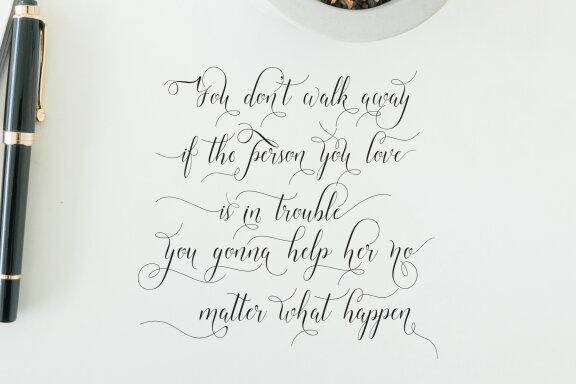 You don't walk away
if the person you love
is in trouble
you gonna help her no
matter what happen